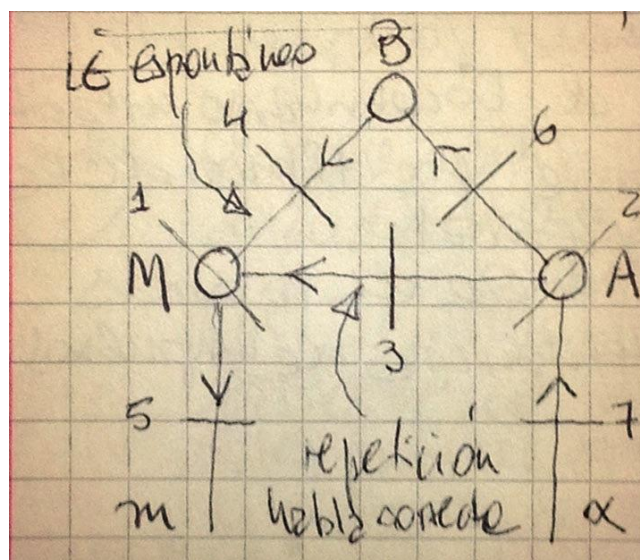 LE espontáneo
B
4
6
1
2
M
A
3
5
7
repetición
m
habla correcta
α